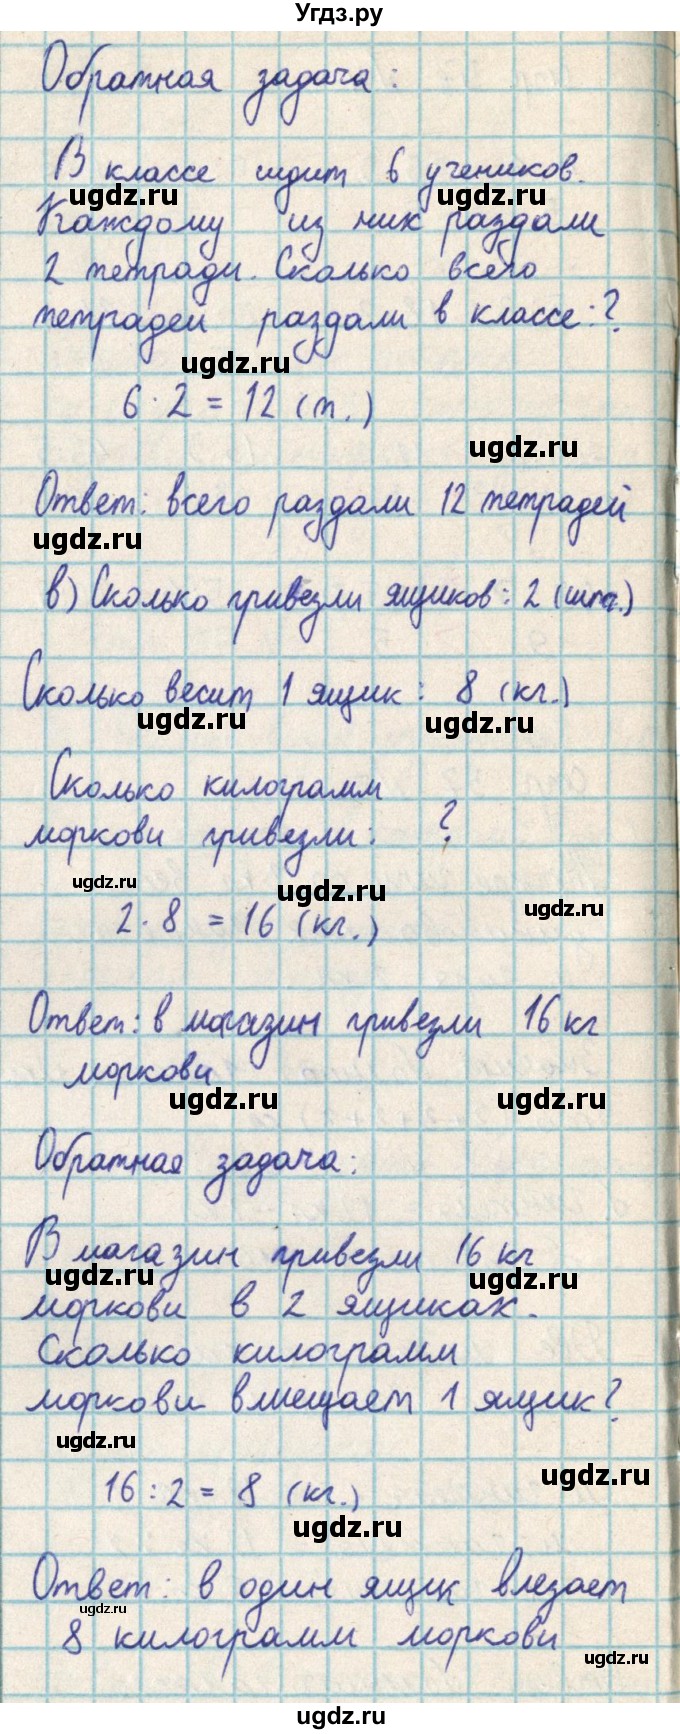 Угдз.ру
Обратная задача:
В классе сидит 6 учеников.
ugdz.ru ugdz.ru
Каждому из них раздали
2 тетради. Сколько всего
тетрадей раздали в классе:?
ugdz.ru
6 · 2 = 12 (т.)
ugdz.ru
Ответ: всего раздали 12 тетрадей
ugdz.ru
в) Сколько привезли ящиков: 2 (шт.)
Сколько весит 1 ящик: 8 (кг.)
ugdz.ru ugdz.ru
Сколько килограмм
моркови привезли: ?
ugdz.ru ugdz.ru ugdz.ru
2 · 8 = 16 (кг.)
Ответ: в магазин привезли 16 кг
моркови
ugdz.ru ugdz.ru
Обратная задача:
В магазин привезли 16 кг
ugdz.ru ugdz.ru
моркови в 2 ящиках.
Сколько килограмм
моркови вмещает 1 ящик?
ugdz.ru
ugdz.ru
16 : 2 = 8 (кг.)
ugdz.ru
Ответ: в один ящик влезает
ugdz.ru
8 килограмм моркови
ugdz.ru
ugdz.ru